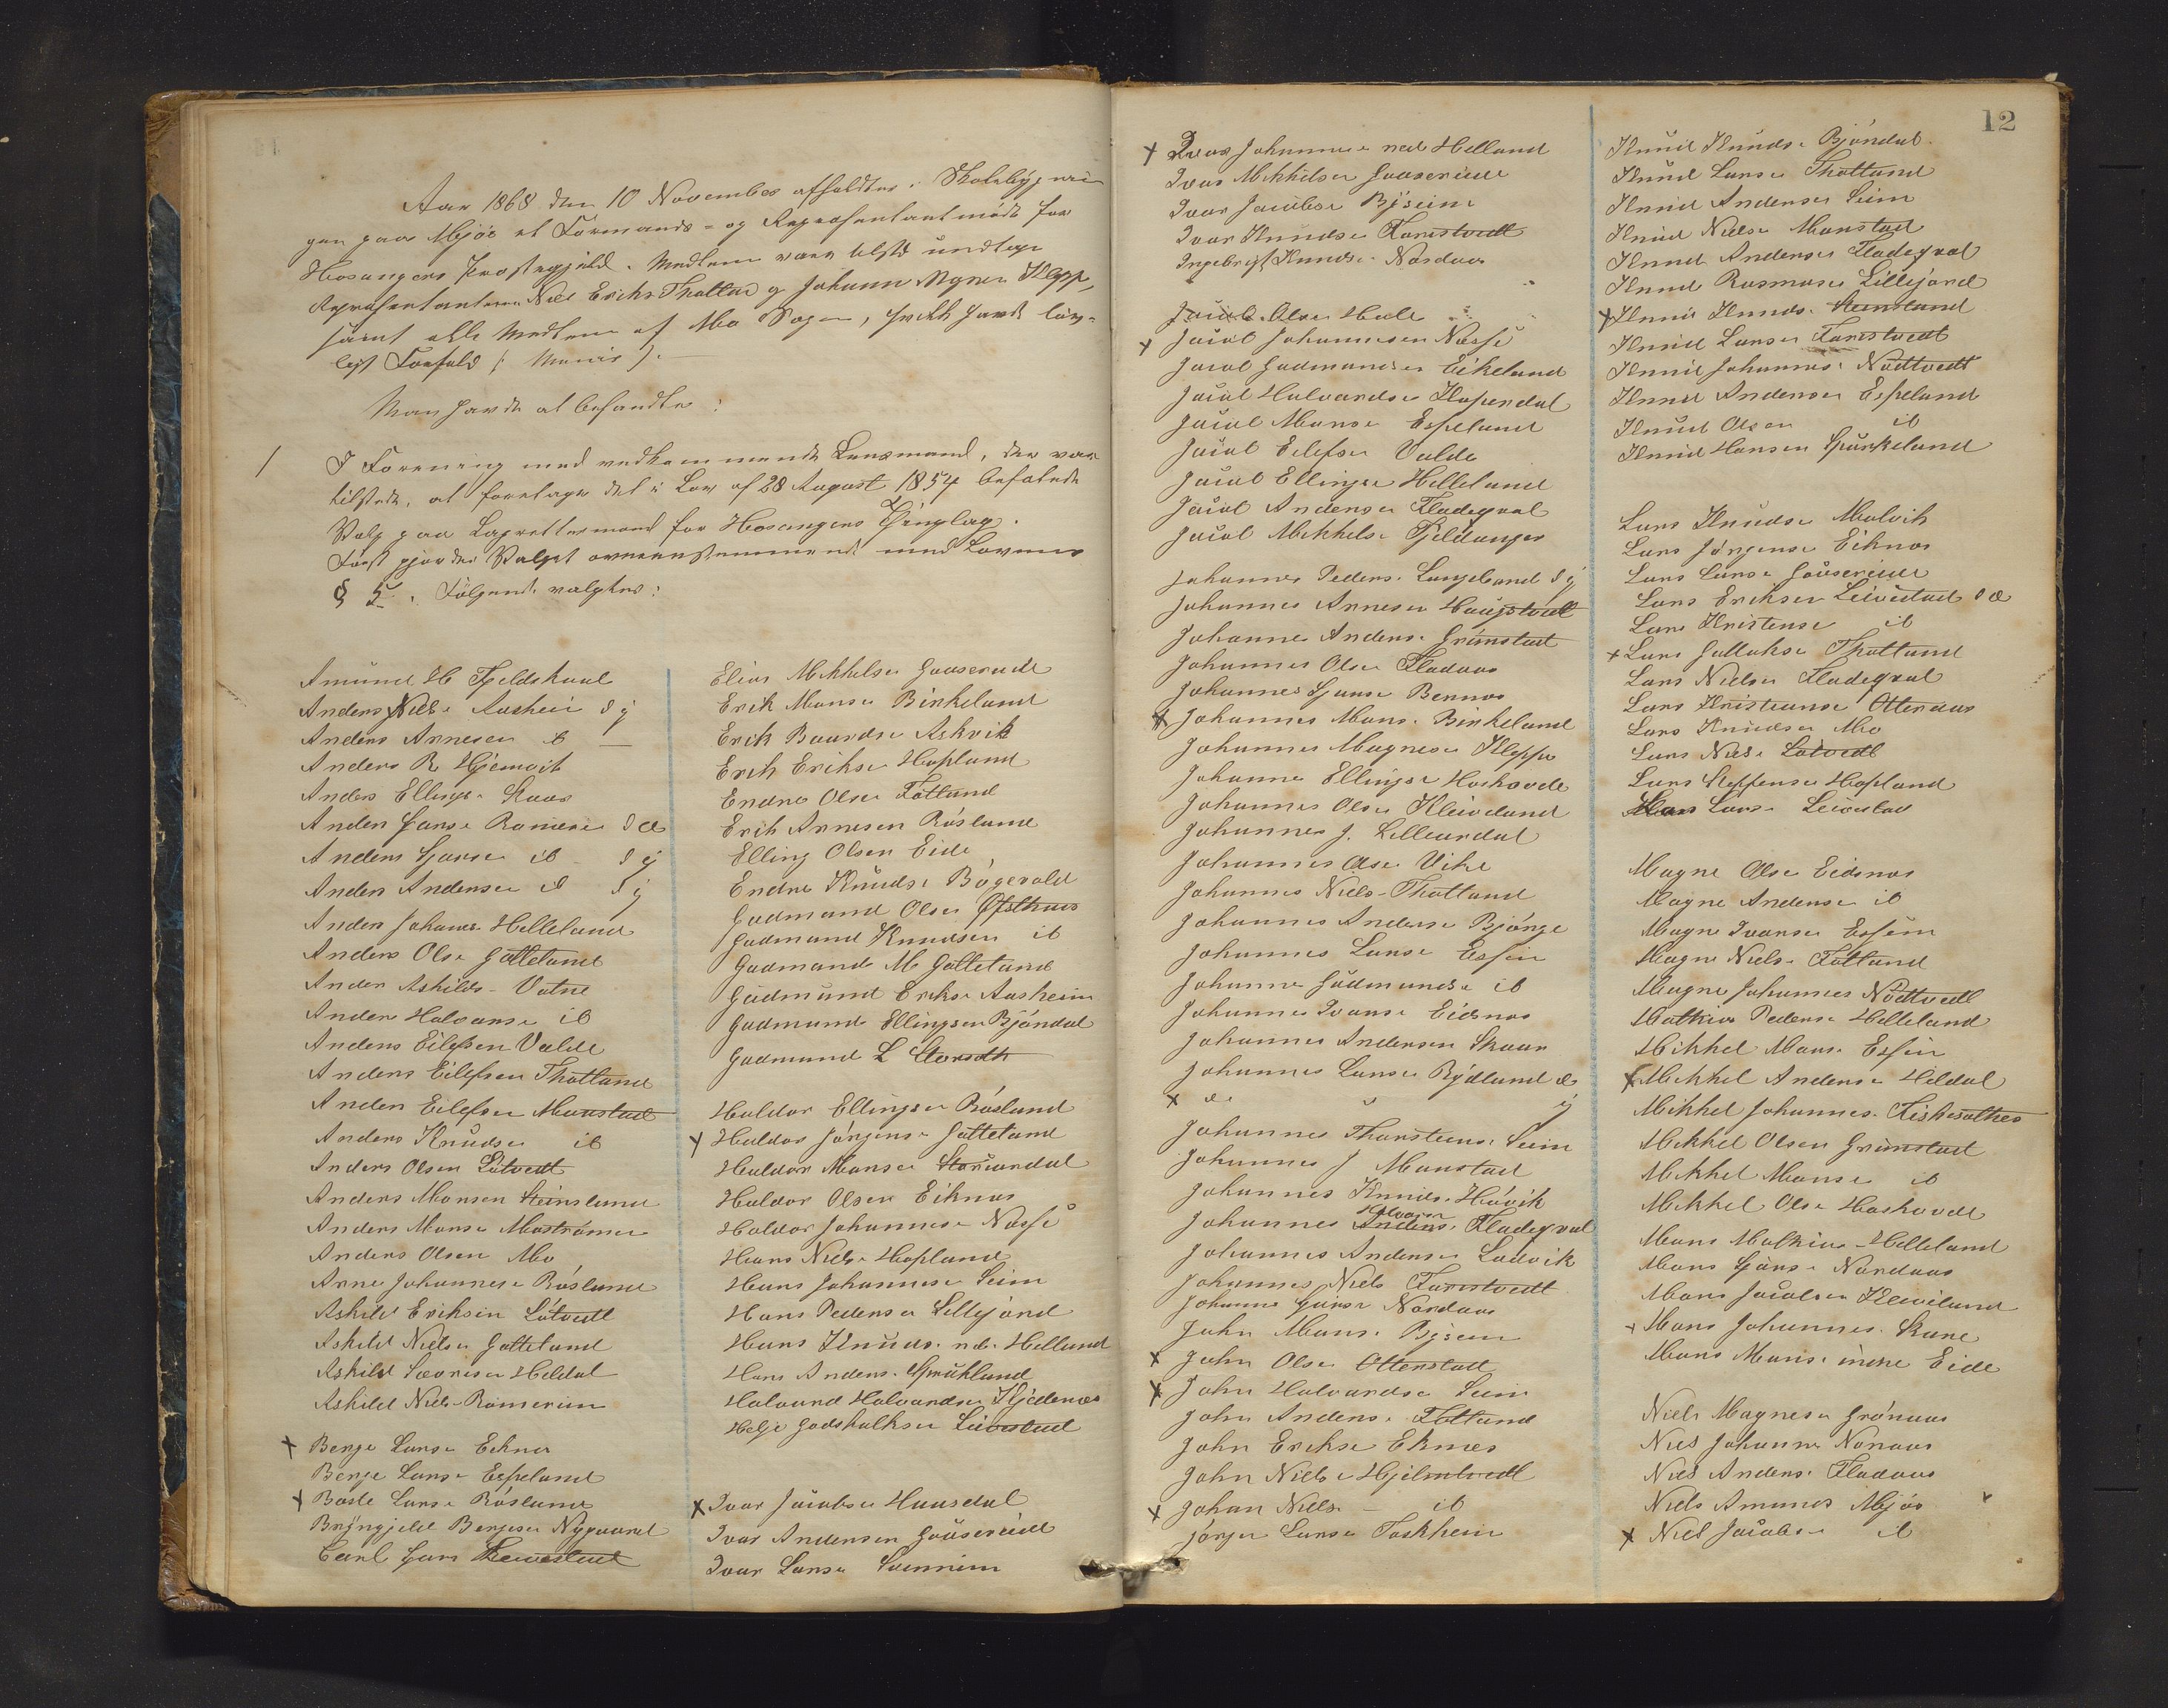 Aar 1868 den 10 November afholdtes i Skolebygnin
gen paa Mjøs et Formands- og Repræsentantmøde for
Hosangers Præstegjeld. Medlem vare tilsted undtagen
Repræsentanterne Niel Eriks. Thotland og Johann Magnes. Klepp,
samt alle Medlem af Mo Sogn, hvilke havde lov-
ligt Forfald
Man havde at behandle:
1 I Forening med vedkommende Lensmand, der var
tilstede, at foretage det i Lov af 28 August 1854 befalede
Valg paa Lagrettemænd for Hosangers Thinglag.
Først gjordes Valget overensstemmende med Lovens
§ 5. Følgende valgtes:
Amund H Fjeldskaal
Anders Niels. Aasheim d y
Anders Arnesen ib —
Anders R Hjemvik
Anders Ellings. Skaar
Anders Hans. Romerei d æ
Anders Hanse ib d y
Anders Andersen ib d y
Anders Johanes. Helleland
Anders Olse Gotteland
Anders Askilds. Vatne
Anders Halvorse ib
Anders Eilefsen Valde
Anders Eilefsen Thotland
Anders Eilefsen Monstad
Anders Knudse ib
Anders Olsen Litvedt
Anders Monsen Steinsland
Anders Monse Mostrømen
Anders Olsen Mo
Arne Johannese Røsland
Askild Eriksen Lötveit
Askild Nielse Gotteland
Askild Sævrese Heldal
Askild Niels. Römerim
x Berge Larse Eknes
Berge Larse Espeland
x Baste Larse Røsland
Brynjeld Bergese Nygaard
Carl Hans Leivestad
Elias Mikkelse Gaaserud
Erik Monse Birkeland
Erik Baardse Askvik
Erik Erikse Hopland
Endre Olse Fotland
Erik Arnesen Røsland
Elling Olsen Eide
Endre Knuds. Bogevold
Gudmund Olse Ofsthus
Gudmund Knudsen ib
Gudmund M Gotteland
Gudmund Erikse Aasheim
Gudmund Ellingsen Bjøndal
Gudmund L Storseth
Haldor Ellingse Røsland
x Haldor Jørgense Gotteland
Haldor Monse Storurdal
Haldor Olsen Eiknes
Haldor Johannese Næsse
Hans Niels. Hopland
Hans Johannese Seim
Hans Pederse Lillejord
Hans Knuds. ned. Helland
Hans Anders. Spurkland
Halvard Halvardse Kjedenes
Helje Godskalkse Leivestad
x Ivar Jacobse Hausdal
Ivar Andersen Gaaserud
Ivar Larse Sverreim
x Ivar Johannese ned Helland
Ivar Mikkelse Gaaserud
Ivar Jacobse Bysheim
Ivar Knudse Tarestvedt
Ingebrigt Knudse Nordaas
Jacob Olse Hole
x Jacob Johannesen Næsse
Jacob Gudmundse Eikeland
Jacob Halvardse Kleppendal
Jacob Monse Espeland
Jacob Eilefse Valde
Jacob Ellingse Helleland
Jacob Anderse Fladegval
Jacob Mikkelse Fjeldanger
Johannes Peders. Langeland d y
Johannes Arnese Haugstvedt
Johannes Anders. Grimstad
Johannes Olse Fladaas
Johannes Hanse Bernes
x Johannes Mons. Birkeland
Johannes Magnese Kleppe
Johannes Ellingse Haskovde
Johannes Olse Kleiveland
Johannes J. Lilleurdal
Johannes Olse Vike
Johannes Niels. Thotland
Johannes Anderse Bjørge
Johannes Larse Essem
Johannes Gudmundse ib
Johannes Ivarse Eidsnes
Johannes Andersen Skaar
Johannes Larse Rydland æ
x do " y
Johannes Thorstense Seim
Johannes J Monstad
Johannes Knuds. Hovik
Halvorse
Johannes Anders. Fladegval
Johannes Anderse Ladvik
Johannes Niels Tarestvedt
Johannes Hanse Nordaas
John Mons. Byseim
x John Olse Otterstad
x John Halvardse Seim
John Anderse Fotland
John Erikse Eknes
John Nielse Hjelmtvedt
x Johan Niels. — ib
Jørgen Larse Toskheim
12
Knud Knuds. Bjøndal
Knud Larse Thotland
Knud Anderse Seim
Knud Nielse Monstad
Knud Anderse Fladegval
Knud Rasmuse Lillejord
x Knud Knuds. Steinsland
Knud Larse Tarestvedt
Knud Johannes. Nödtvedt
Knud Anderse Espeland
Knud Olsen ib
Knud Hansen Spurkeland
Lars Knudse Molvik
Lars Jørgense Eiknes
Lars Larse Gaaserud
Lars Eriksen Leivestad d æ
Lars Kristense ib
x Lars Gullakse Thotland
Lars Nielse Fladegval
Lars Kristianse Otteraas
Lars Knudse Mo
Lars Niels. Lötvedt
Lars Steffense Hopland
Lars Larse Leivestad
Magne Olse Eidsnes
Magne Anderse ib
Magne Ivarse Essem
Magne Niels. Fotland
Magne Johannes Nödtvedt
Mathias Pederse Helleland
Mikkel Mons. Essem
x Mikkel Anderse Heldal
Mikkel Johannes. Fiskesæthre
Mikkel Olsen Grimstad
Mikkel Monse ib
Mikkel Olse Haskovde
Mons Mathias. Helleland
Mons Hans. Nordaas
Mons Jacobsen Kleiveland
x Mons Johannes. Skare
Mons Mons. indre Eide
Niels Magnese Grønaas
Niels Johanne Nonaas
Niels Anders. Fladaas
Niels Amunds Mjøs
x Niel Jacobse ib